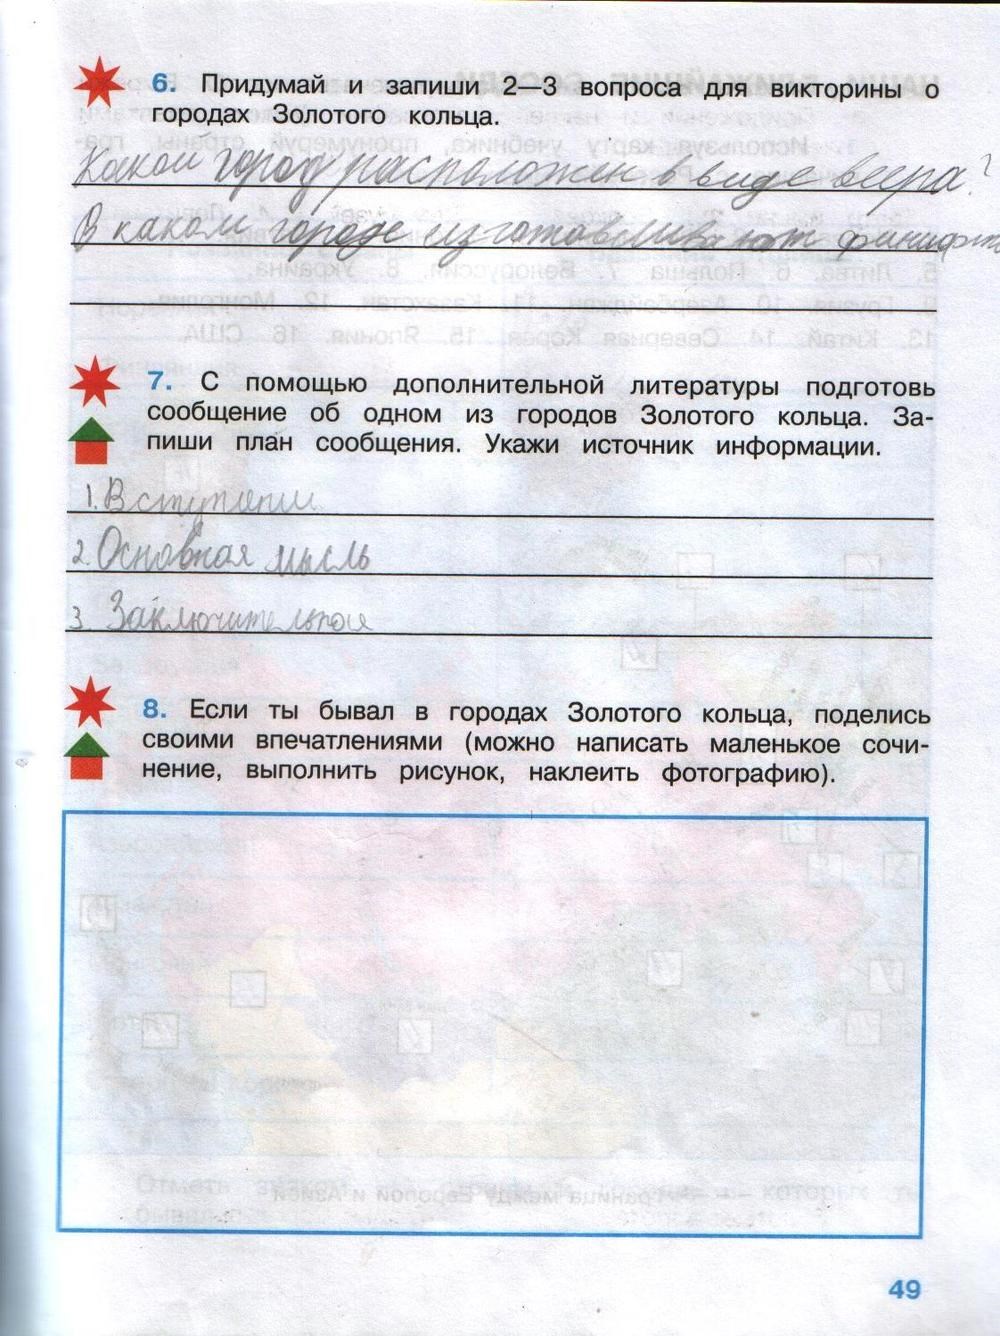 6. Придумай и запиши 2—3 вопроса для викторины о
городах Золотого кольца.
Какой город расположен в виде веера?
В каком городе изготовливают финифт
7. С помощью дополнительной литературы подготовь
сообщение об одном из городов Золотого кольца. За-
пиши план сообщения. Укажи источник информации.
1. Вступление
2. Основная мысль
3. Заключительная
8. Если ты бывал в городах Золотого кольца, поделись
своими впечатлениями (можно написать маленькое сочи-
нение, выполнить рисунок, наклеить фотографию).
49